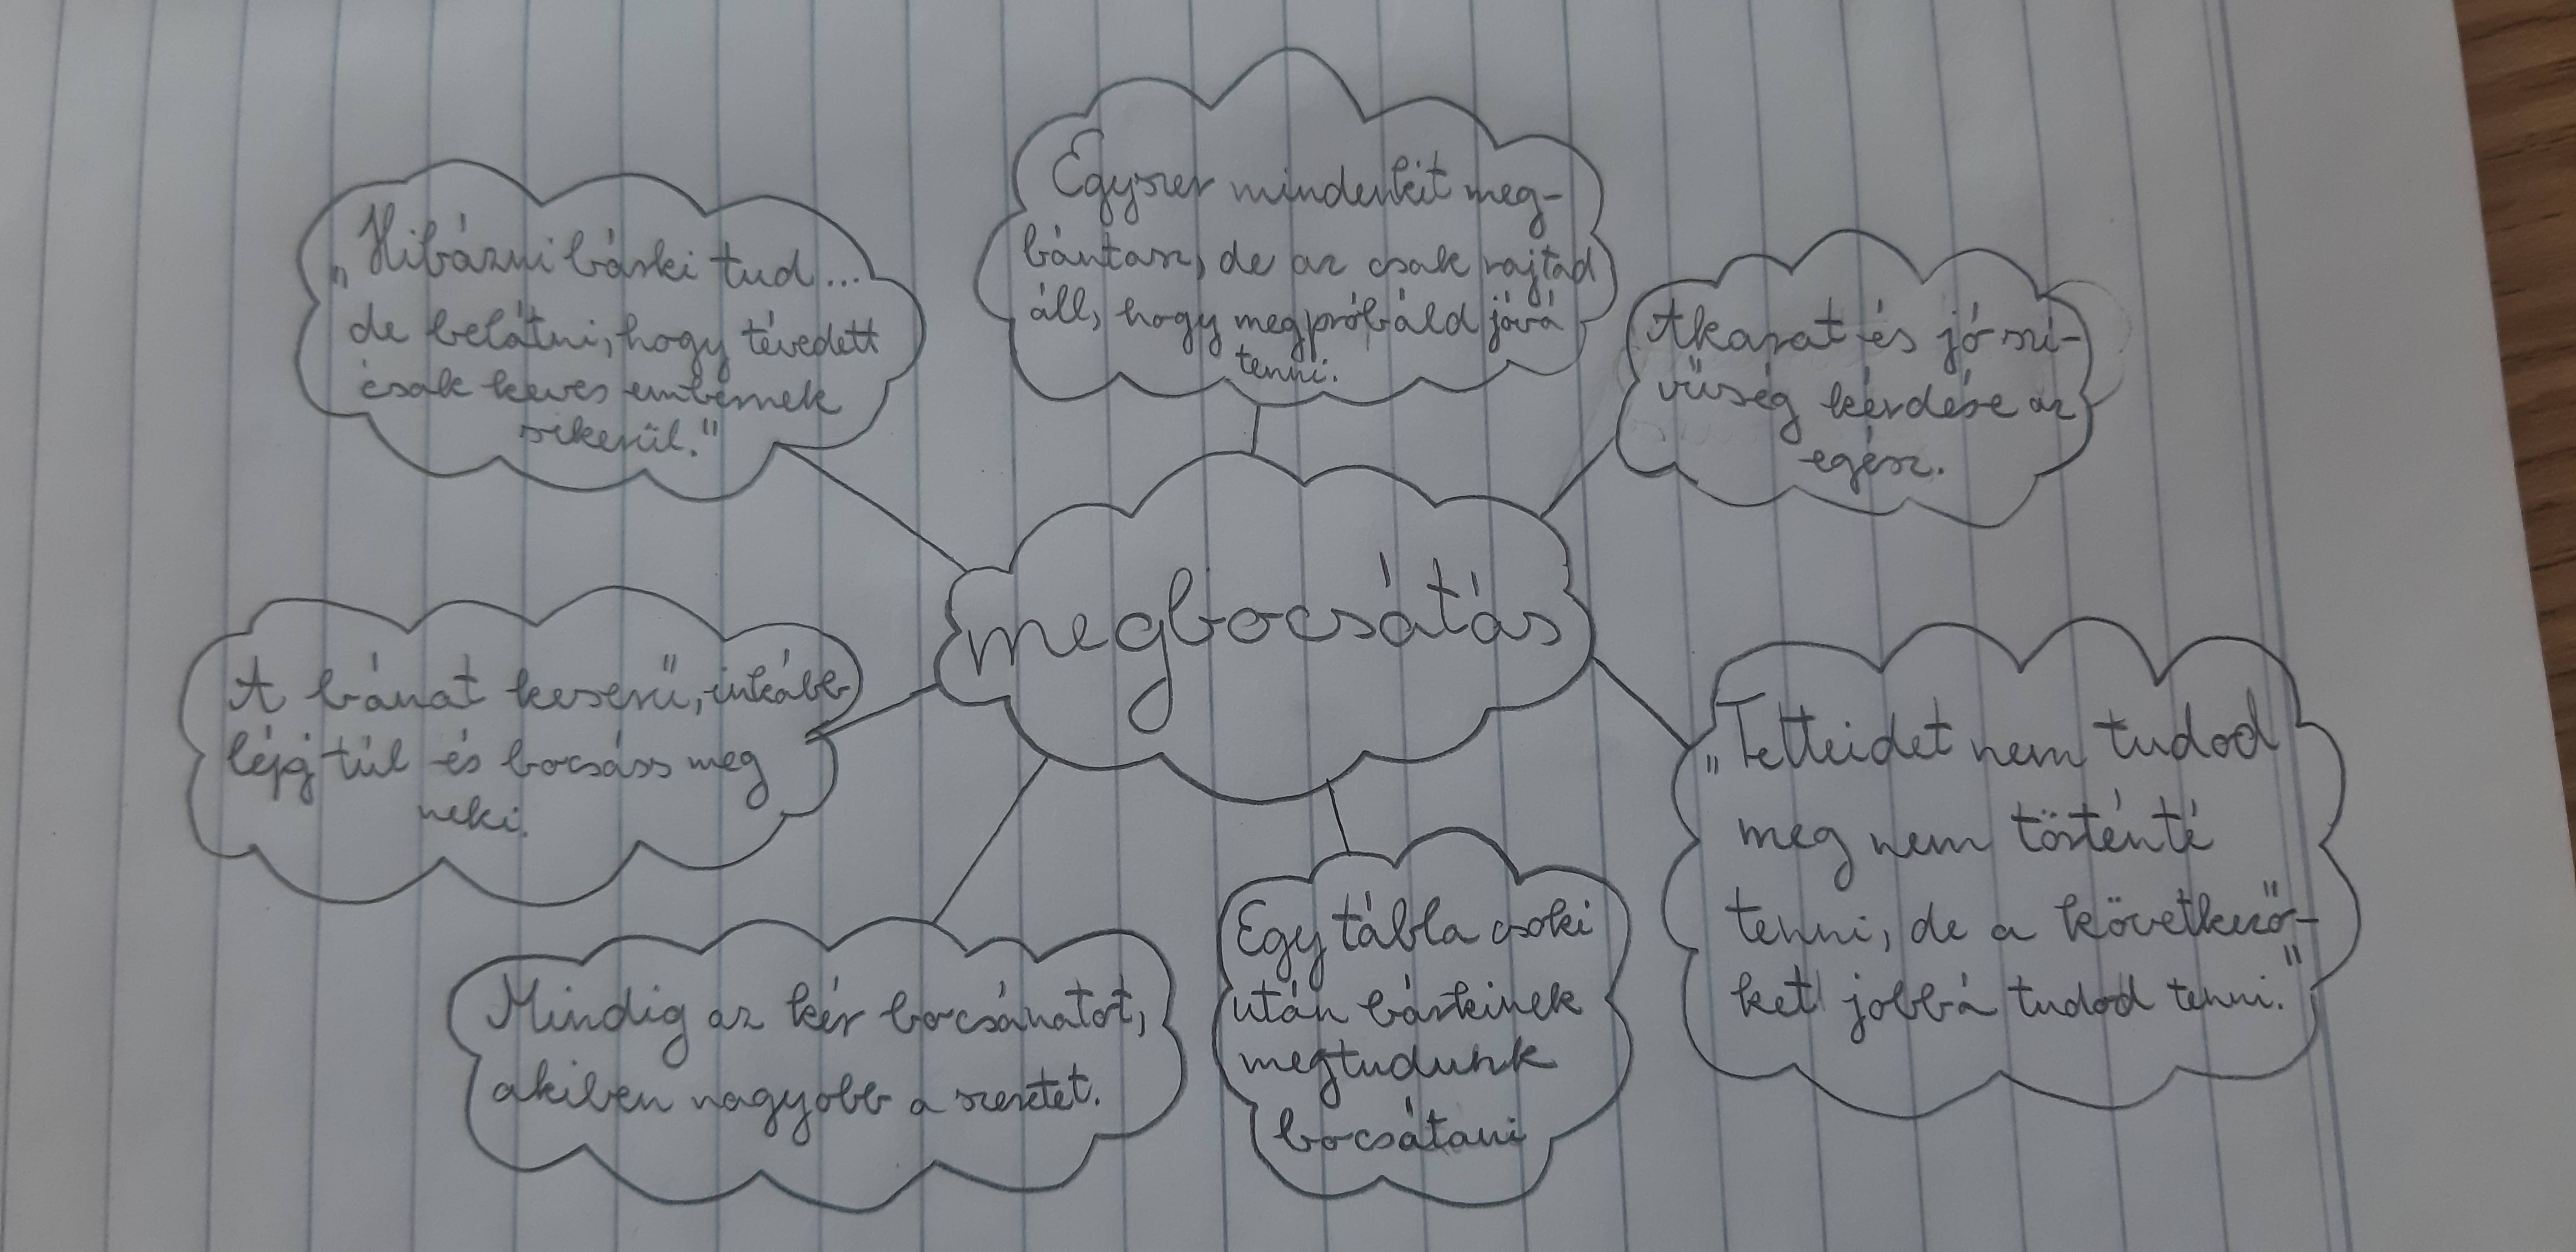 „Hibázni bárki tud...
de belátni, hogy tévedett
csak keves embernek
sikerül."
Egyszer mindenkit meg-
bántasz, de az csak rajtad
áll, hogy megpróbáld jóvá
tenni.
Akarat és jó szí-
vűség kérdése az
egész.
megbocsátás
A bánat keserű, inkább
lépj túl és bocsáss meg
neki.
„Tetteidet nem tudod
meg nem történté
tenni, de a következő-
ket jobbá tudod tenni."
Mindig az kér bocsánatot,
akiben nagyobb a szeretet.
Egy tábla csoki
után bárkinek
megtudunk
bocsátani